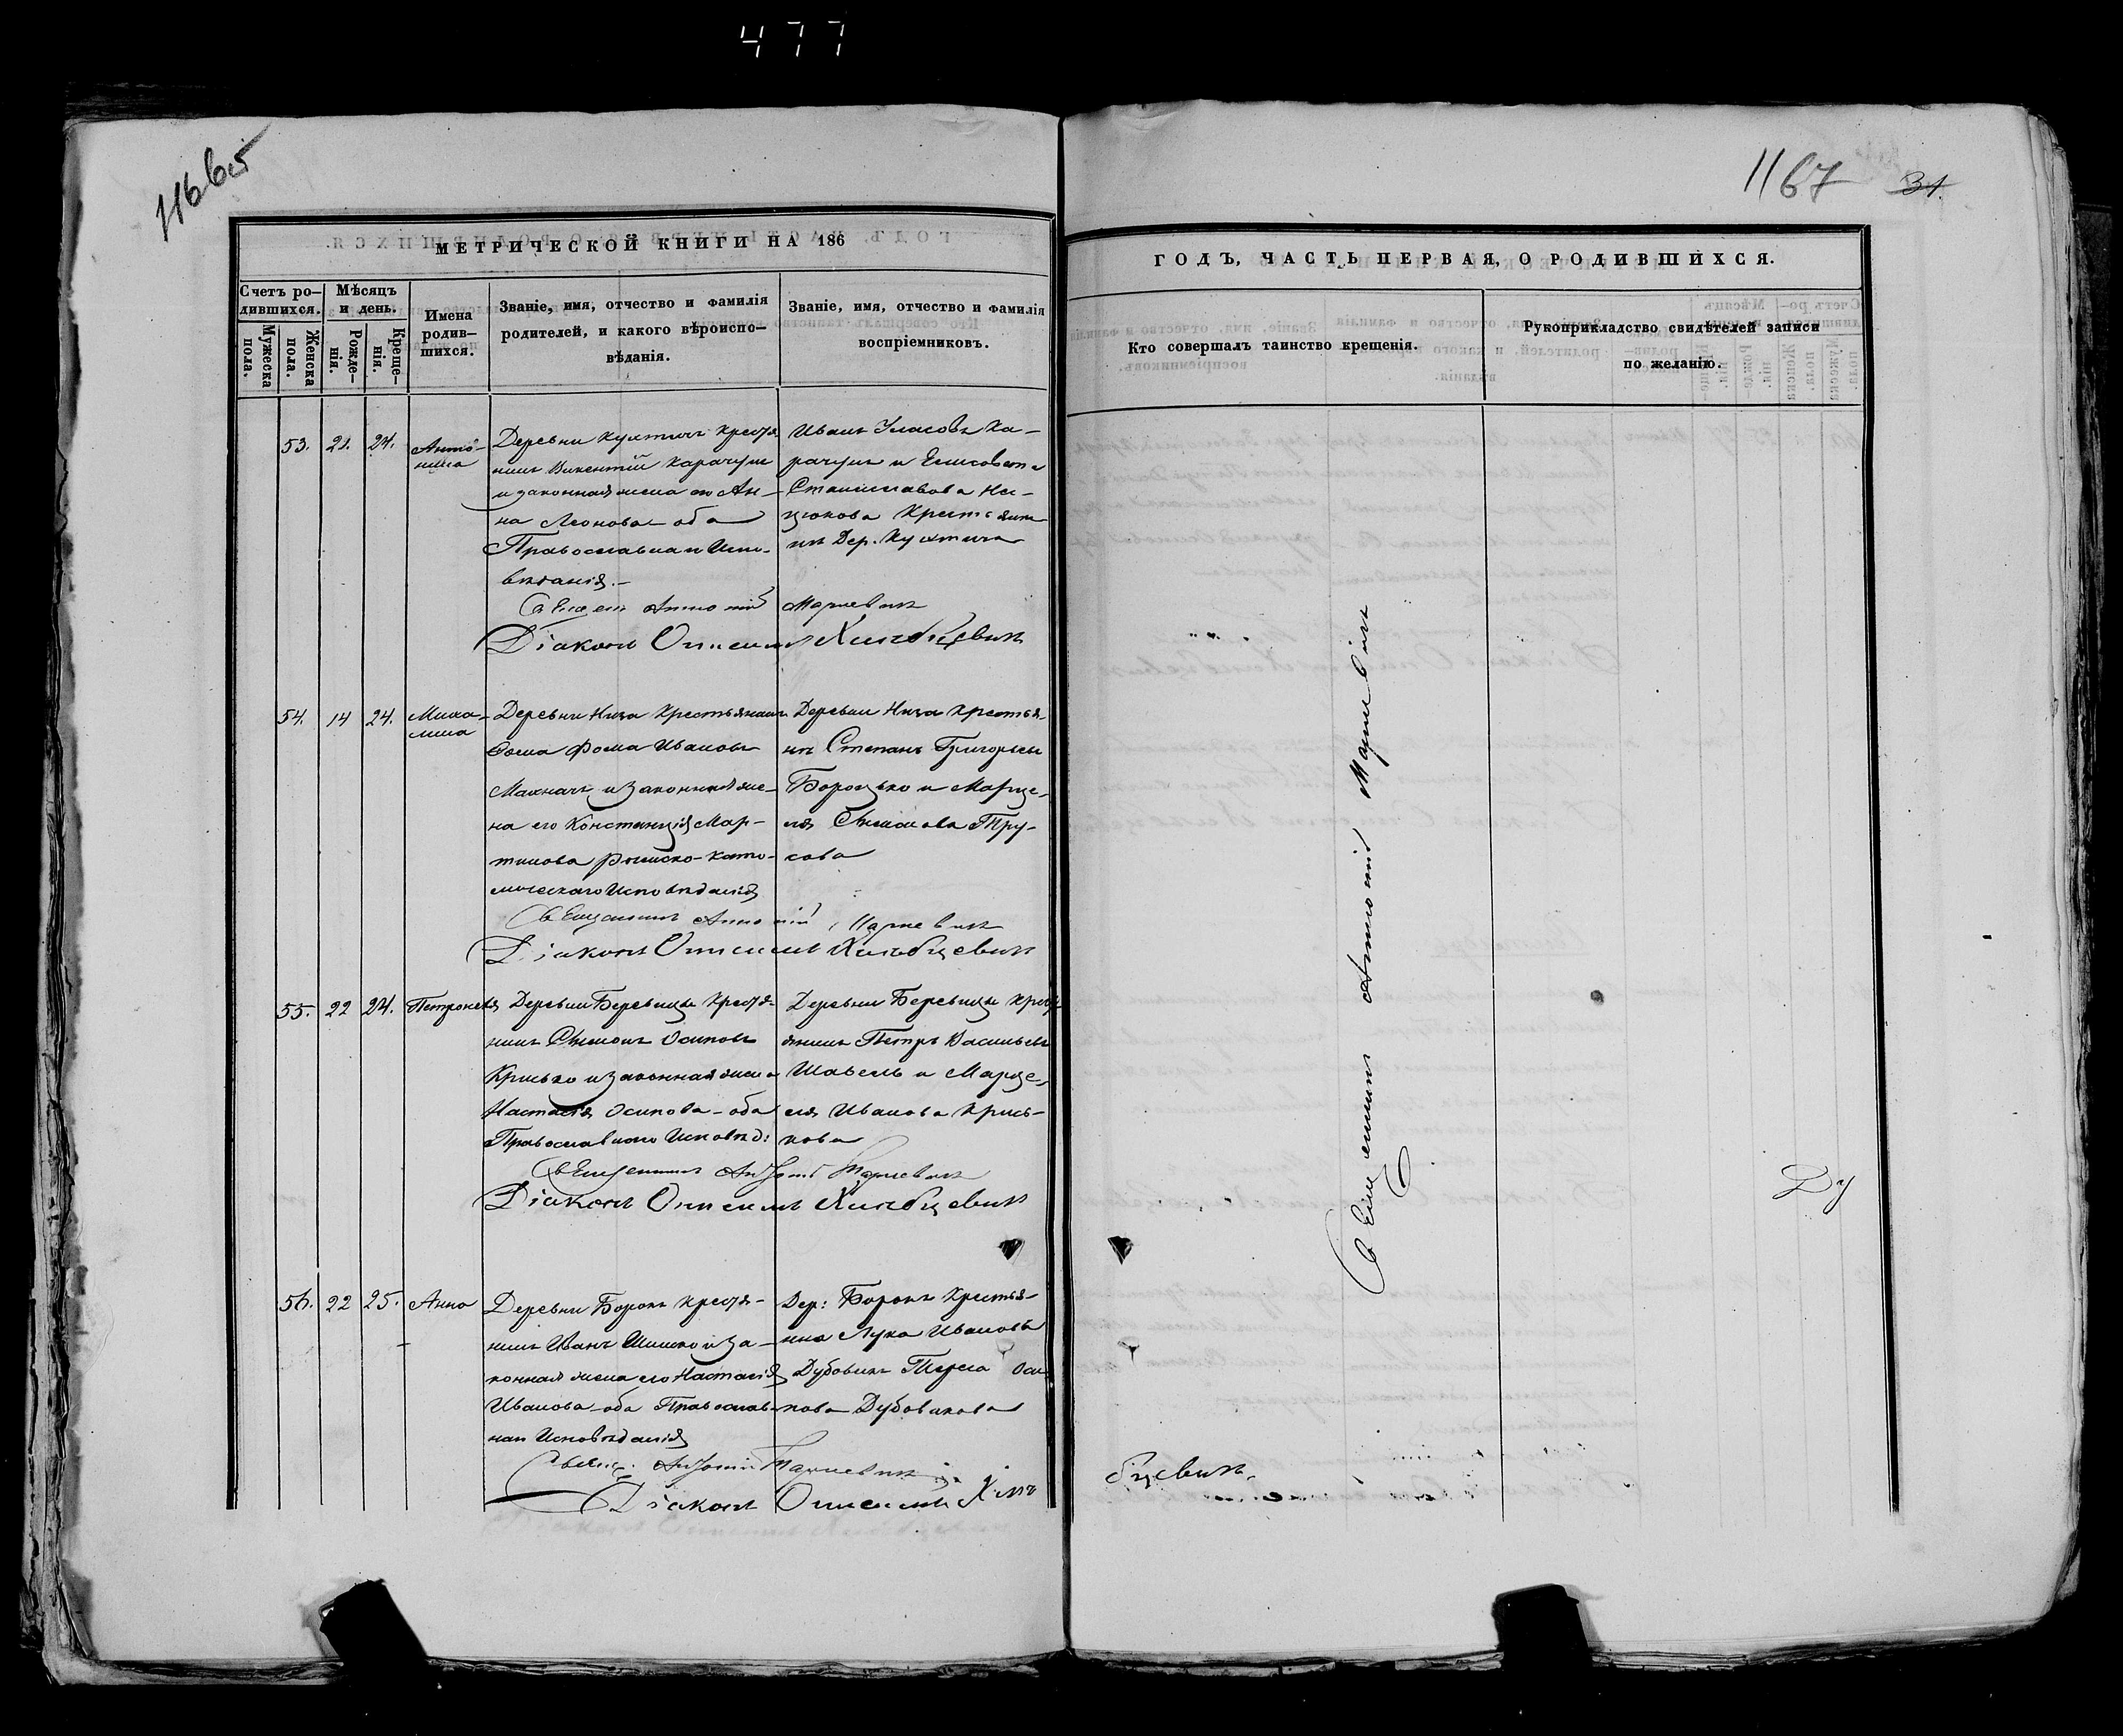 477
1166об
1167 31.
МЕТРИЧЕСКОЙ КНИГИ НА 186
ГОДЪ, ЧАСТЬ ПЕРВАЯ, О РОДИВШИХСЯ.
Счетъ ро-
дившихся.
Мужеска
пола.
Женска
пола.
Мѣсяцъ
и день.
Рожде-
нія.
Креще-
нія.
Имена
родив-
шихся.
Званіе, имя, отчество и фамилія
родителей, и какого вѣроиспо-
вѣданія.
Званіе, имя, отчество и фамилія
воспріемниковъ.
Кто совершалъ таинство крещенія.
Рукоприкладство свидѣтелей записи
по желанію.
53. 21. 24.
Анто-
нина
Деревни Крестья
нинъ Викентій Карачунъ
и законная жена его Ан-
на Леонова оба
Православнаго Испо-
вѣданія.-
Иванъ Уласовъ Ка-
рачунъ и Елисовета
Станиславова
Крестьян
Дер.
Антоній Марцевичъ
Діаконъ Онисимъ
54. 14 24.
Миха-
лина
Деревни Нива Крестьянинъ
Фома Ивановъ
Махначъ и законная же-
на его Констанція Мар-
тинова Римско-като-
лическаго Исповѣданія
Деревни Нива Крестья-
нъ Степанъ Григорьевъ
и Марце-
ля Симонова Тру-
сова
Священникъ Антоній
Діаконъ Онисимъ
55. 22 24.
Петронеля
Деревни Крестья-
нинъ Симонъ Осиповъ
Крисько и законная жена
Настасія Осипова-оба
Православнаго Исповѣд:
Деревни Крест
янинъ Петръ Васильевъ
Шавель и Марце-
ля Иванова Крись-
кова
Священникъ Антоній Марцевичъ
Діаконъ Онисимъ
56. 22 25.
Анна
Деревни Борокъ Крестья-
нинъ Иванъ Шишко и за-
конная жена его Настасія
Иванова-оба Православ-
наго Исповѣданія
Дер: Борокъ Крестья-
нина Лука Ивановъ
Дубовикъ Оси-
пова Дубовикова
Священ. Антоній Марцевичъ
Діаконъ Онисимъ
бцевичъ.
Священникъ Антоній Марцевичъ